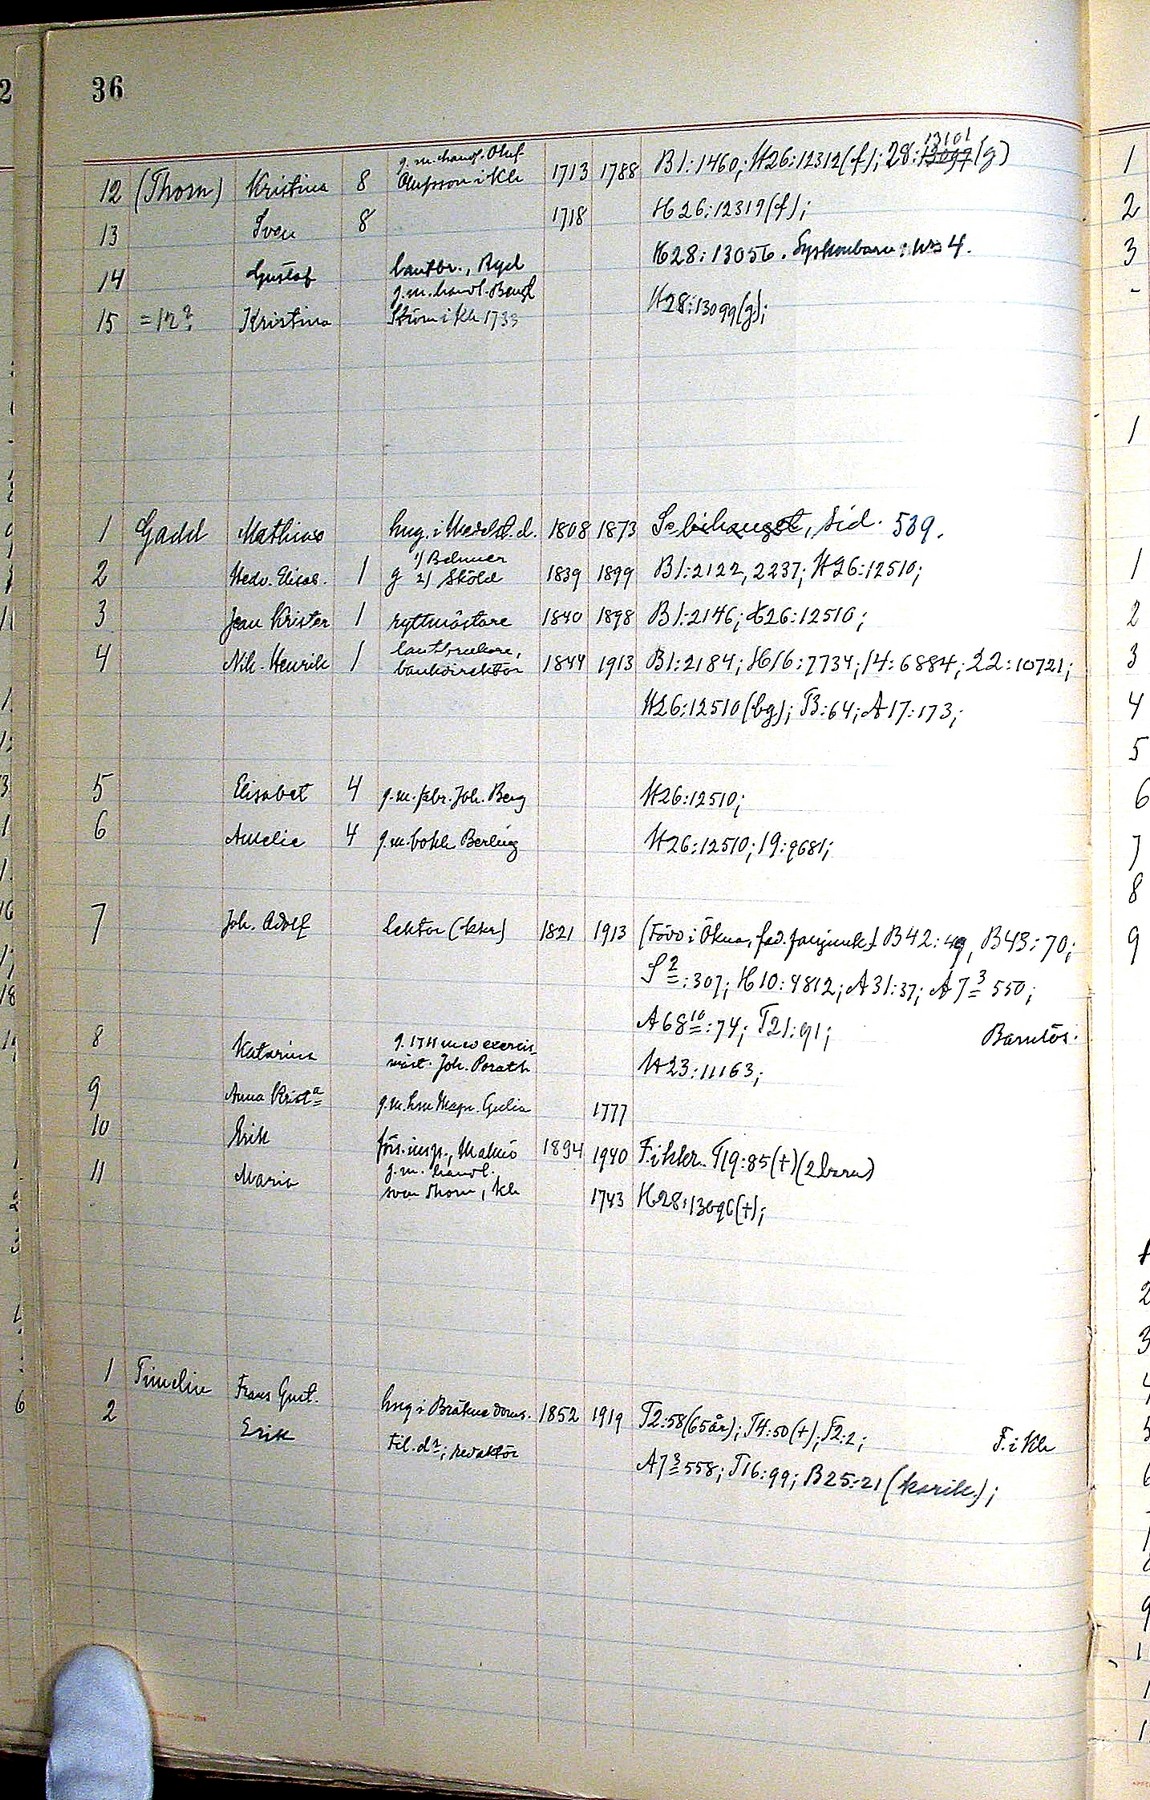 36
g.m. handl. Oluf
12 (Thorn) Kristina 8 Olufsson i Kh 1713 1788 B1:1460; H26:12312(f); 28:13097 13101 (g)
13 Sven 8 1718 H26:12319(f);
14 Gustaf lantbr., Ryd H28:13056. Syskonbarn: nr 4.
g.m. handl. Bengt
15 =12? Kristina Ström i Kh 1733 H28:13099(g);
1 Gadd Mathias hng. i 1808 1873 Se bihanget, sid. 539.
1) Belmer
2 Hedv. Elisab. 1 g 2) Sköld 1839 1899 B1:2122, 2237; H26:12510;
3 Jean Krister 1 ryttmästare 1840 1898 B1:2146; H26:12510;
lantbrukare,
4 Nik. Henrik 1 bankdirektör 1844 1913 B1:2184; H16:7734; 14:6884; 22:10721;
H26:12510(bg); B:64; A17:173;
5 Elisabet 4 g.m. fabr. Joh. Berg H26:12510;
6 Amelie 4 g.m. bokh. Berling H26:12510; 19:9681;
7 Joh. Adolf lektor (kkr) 1821 1913 (Född i Öknar, B42:49, B43:70;
S2:307; H10:4812; A31:37; A7 3 550;
A68 10:74; T21:91; Barnlös.
8 Katarina g. 1711 m.
mäst. Joh. Porath H23:11163;
9 Anna Krista g.m. hsn Magn. Gudia 1777
10 Erik förs.insp., Malmö 1894 1940 F. i khr. T19:85(+)(2 barn)
g.m. handl.
11 Maria Sven Thorn, Kh 1743 H28:13096(+);
1 Timelin Frans Gust. hng i Bräkne doms. 1852 1919 T2:58(65 år); T4:50(+); T2:2; F. i Kh
2 Erik Fil. dr; redaktör A7 3 558; T16:99; B25:21 (karik.);